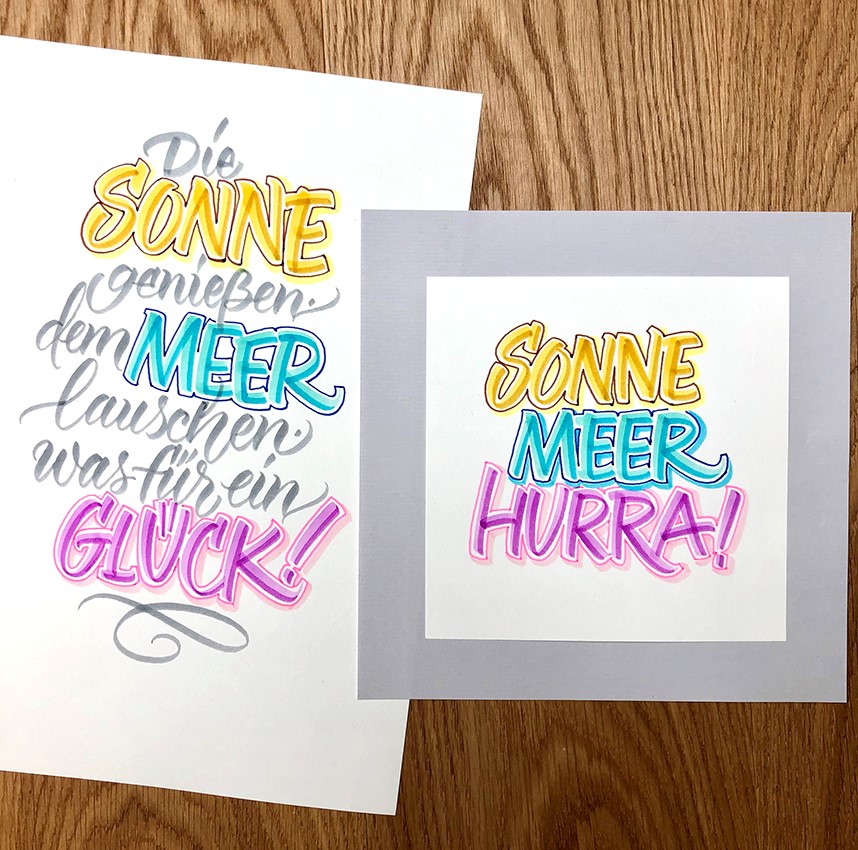 Die
SONNE
genießen.
dem MEER
lauschen.
was für ein
GLÜCK!
SONNE
MEER
HURRA!